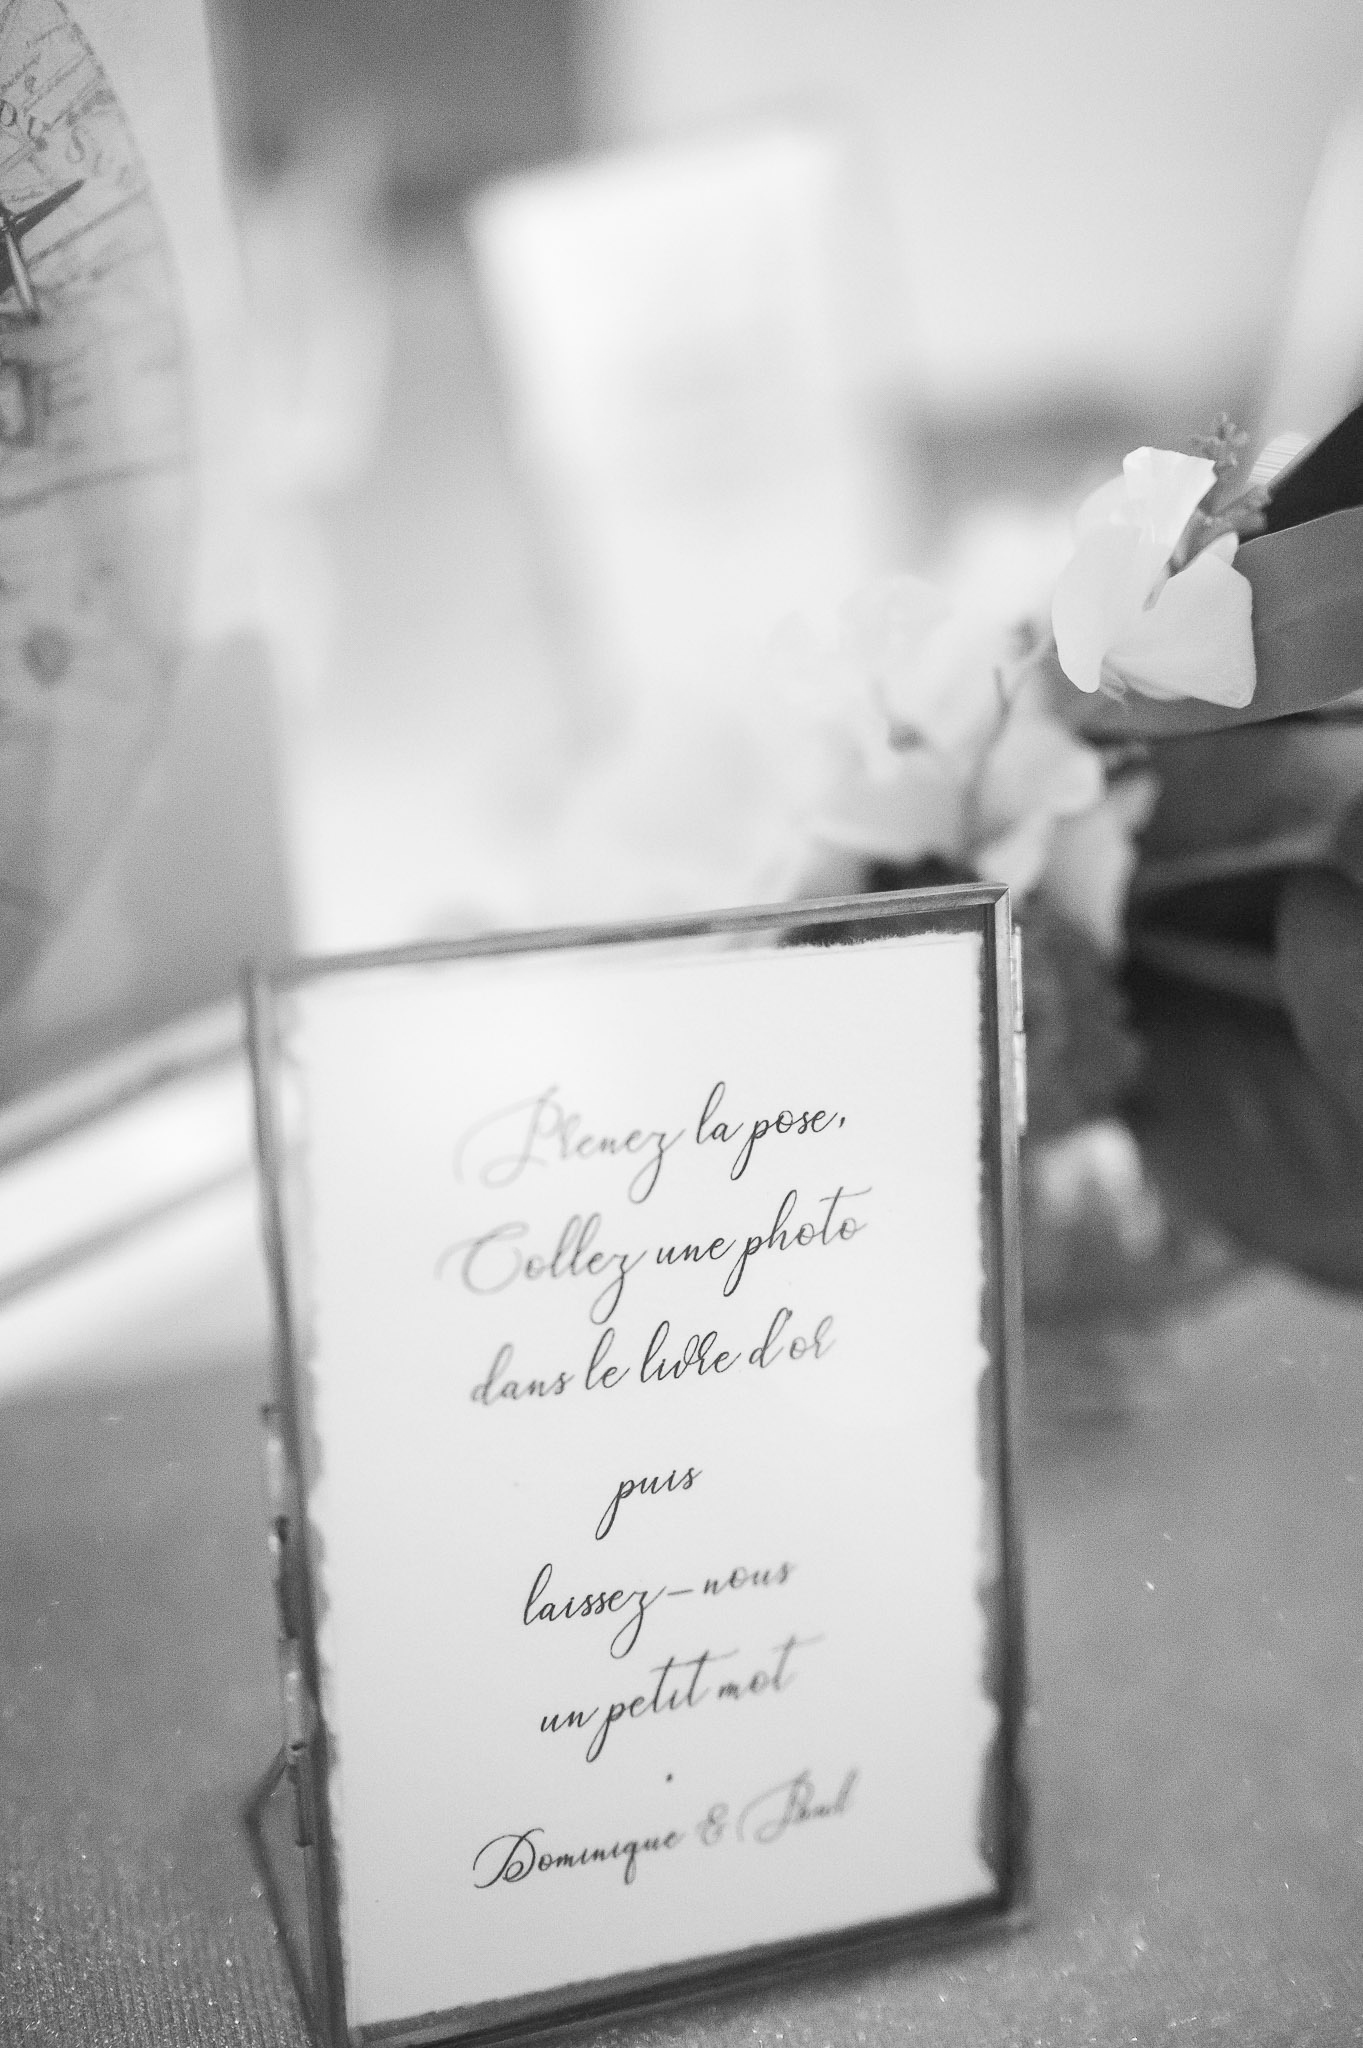 Prenez la pose,
Collez une photo
dans le livre d'or
puis
laissez-nous
un petit mot
.
Dominique & Paul